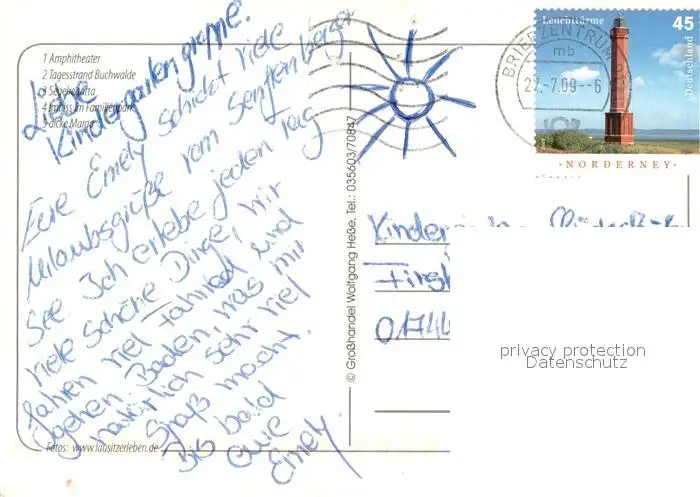 1 Amphitheater
2 Tagesstrand Buchwalde
3 Segelregatta
4 Imbiss im Familienpark
5 dicke Marga
Liebe
Kindergartengruppe.
Eure Emely schickt viele
Urlaubsgrüße vom Senftenberger
See. Ich erlebe jeden Tag
viele schöne Dinge, wir
fahren viel Fahrrad und
gehen Baden, was mir
natürlich sehr viel
Spaß macht.
Bis bald
eure
Emely.
Fotos: www.labsitzerleben.de
© Großhandel Wolfgang Heße, Tel.: 035603/70847
Leuchttürme
45
Deutschland
NORDERNEY
BRIEFZENTRUM
mb
-7.09--6
01744
privacy protection
Datenschutz